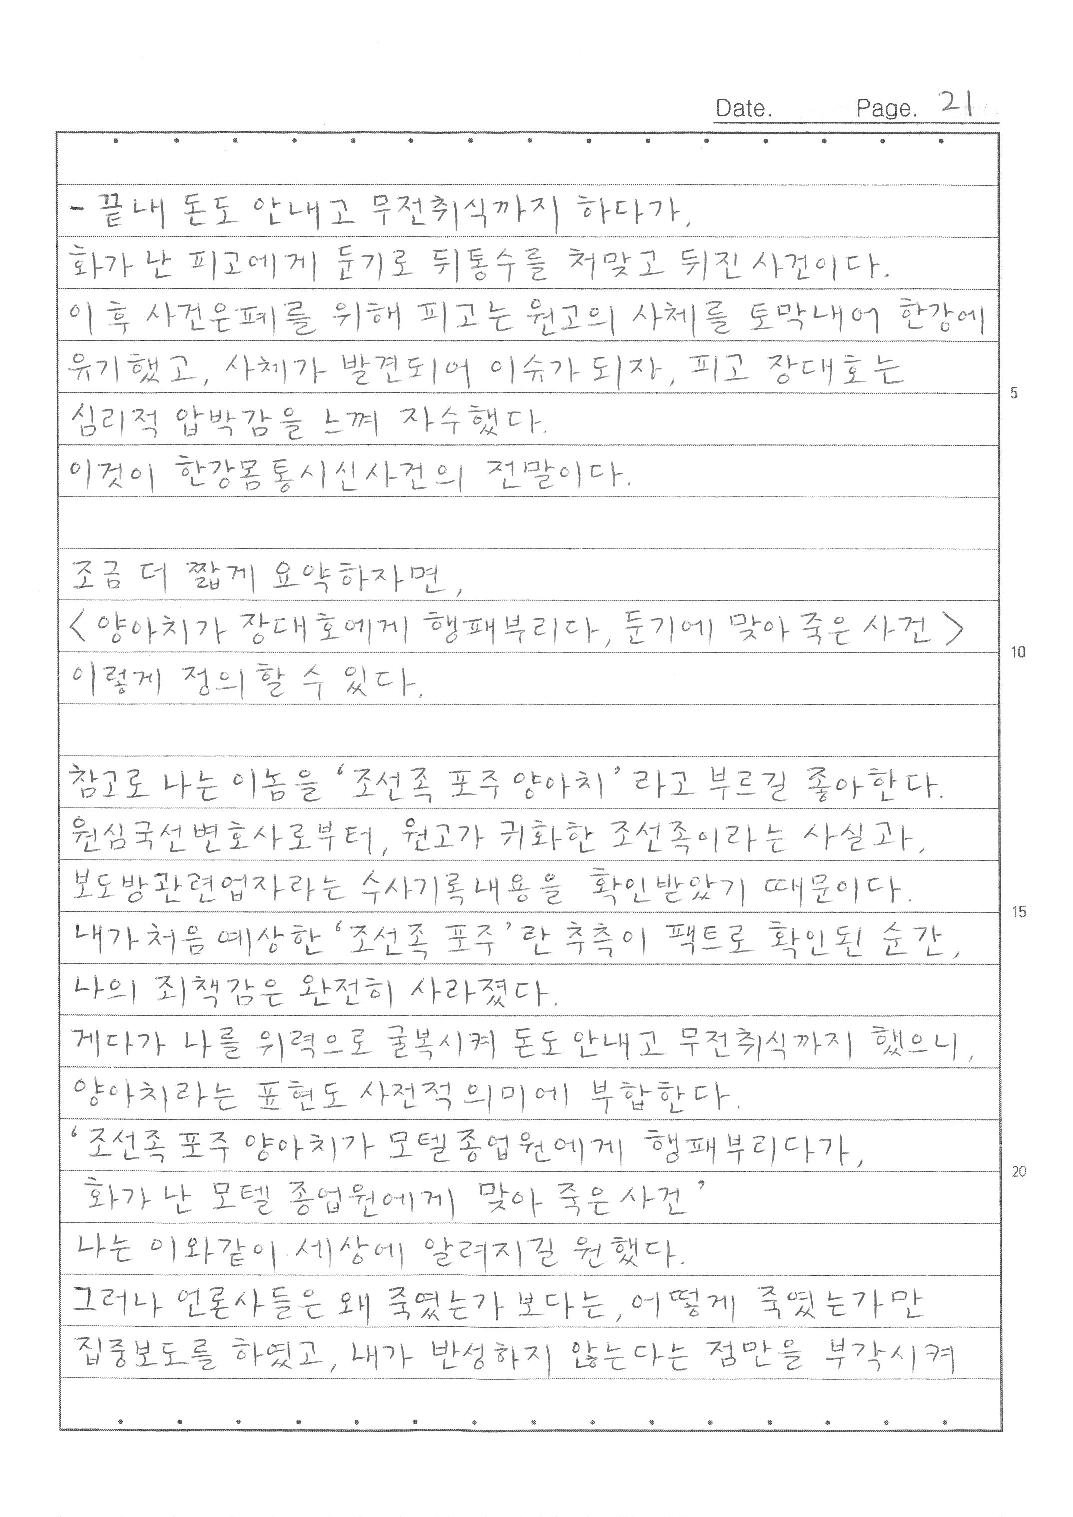 Date. Page. 21
- 끝내 돈도 안내고 무전취식까지 하다가,
화가 난 피고에게 둔기로 뒤통수를 처맞고 뒤진 사건이다.
이후 사건은폐를 위해 피고는 원고의 사체를 토막내어 한강에
유기했고, 사체가 발견되어 이슈가 되자, 피고 장대호는
5
심리적 압박감을 느껴 자수했다.
이것이 한강몸통시신사건의 전말이다.
조금 더 짧게 요약하자면,
<양아치가 장대호에게 행패부리다, 둔기에 맞아 죽은 사건>
10
이렇게 정의할 수 있다.
참고로 나는 이놈을 '조선족 포주 양아치' 라고 부르길 좋아한다.
원심국선변호사로부터, 원고가 귀화한 조선족이라는 사실과,
보도방관련업자라는 수사기록내용을 확인받았기 때문이다.
15
내가 처음 예상한 '조선족 포주'란 추측이 팩트로 확인된 순간,
나의 죄책감은 완전히 사라졌다.
게다가 나를 위력으로 굴복시켜 돈도 안내고 무전취식까지 했으니,
양아치라는 표현도 사전적 의미에 부합한다.
'조선족 포주 양아치가 모텔종업원에게 행패부리다가,
20
화가 난 모텔 종업원에게 맞아 죽은 사건'
나는 이와같이 세상에 알려지길 원했다.
그러나 언론사들은 왜 죽였는가 보다는, 어떻게 죽였는가만
집중보도를 하였고, 내가 반성하지 않는다는 점만을 부각시켜